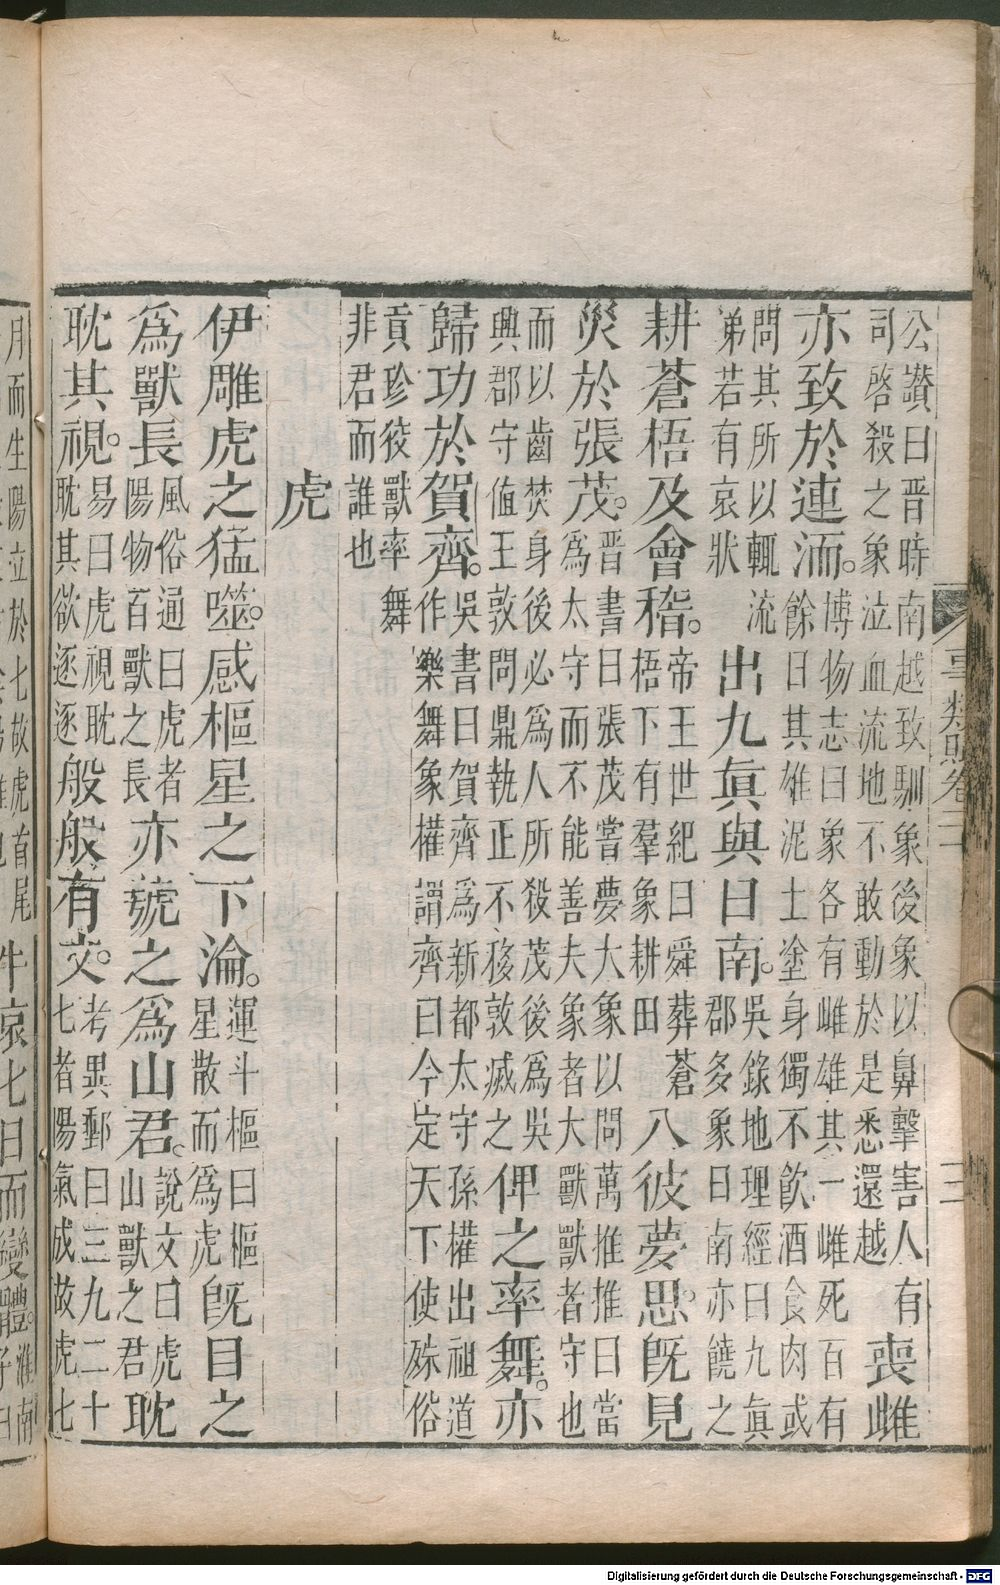 公讃曰晉時南越致馴象後象以鼻擊害人有
司啓殺之象泣血流地不敢動於是悉還越
喪雌
亦致於連洏。
博物志曰象各有雌雄其一雌死百有
餘日其雄泥土塗身獨不飲酒食肉或
問其所以輒流
弟若有哀狀
出九眞與日南。
吳錄地理經曰九眞
郡多象日南亦饒之
耕蒼梧及會稽。
帝王世紀曰舜葬蒼
梧下有羣象耕田
八彼夢思。旣見
災於張茂。
晉書曰張茂嘗夢大象以問萬推推曰當
爲太守而不能善夫象者大獸獸者守也
而以齒焚身後必爲人所殺茂後爲吳
興郡守值王敦問鼎執正不移敦滅之
俾之率舞。亦
歸功於賀齊。
吳書曰賀齊爲新都太守孫權出祖道
作樂舞象權謂齊曰今定天下使殊俗
貢珍役獸率舞
非君而誰也
虎
伊雕虎之猛噬。感樞星之下淪。
運斗樞曰樞
星散而爲虎
旣目之
爲獸長
風俗通曰虎者
陽物百獸之長
亦號之爲山君。
說文曰虎
山獸之君
耽
耽其視。
易曰虎視耽
耽其欲逐逐
般般有文。
考異郵曰三九二十
七者陽氣成故虎七
月而生陽立於七故虎首尾
牛哀七日而變體。
淮南
子曰
事類賦卷二
三
Digitalisierung gefördert durch die Deutsche Forschungsgemeinschaft - DFG